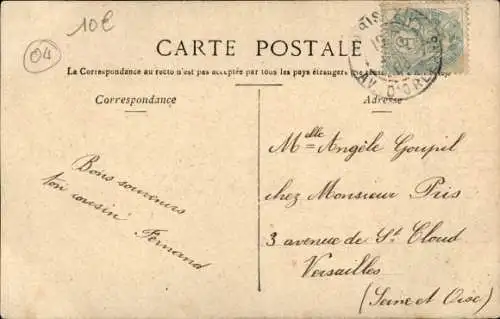 10€
04
CARTE POSTALE
La Correspondance au recto n'est pas acceptée par tous les pays étrangers
Correspondance
Adresse
Bons souvenirs
ton cousin
Fernand
Melle Angèle Goupil
chez Monsieur Pris
3 avenue de St Cloud
Versailles
(Seine et Oise)